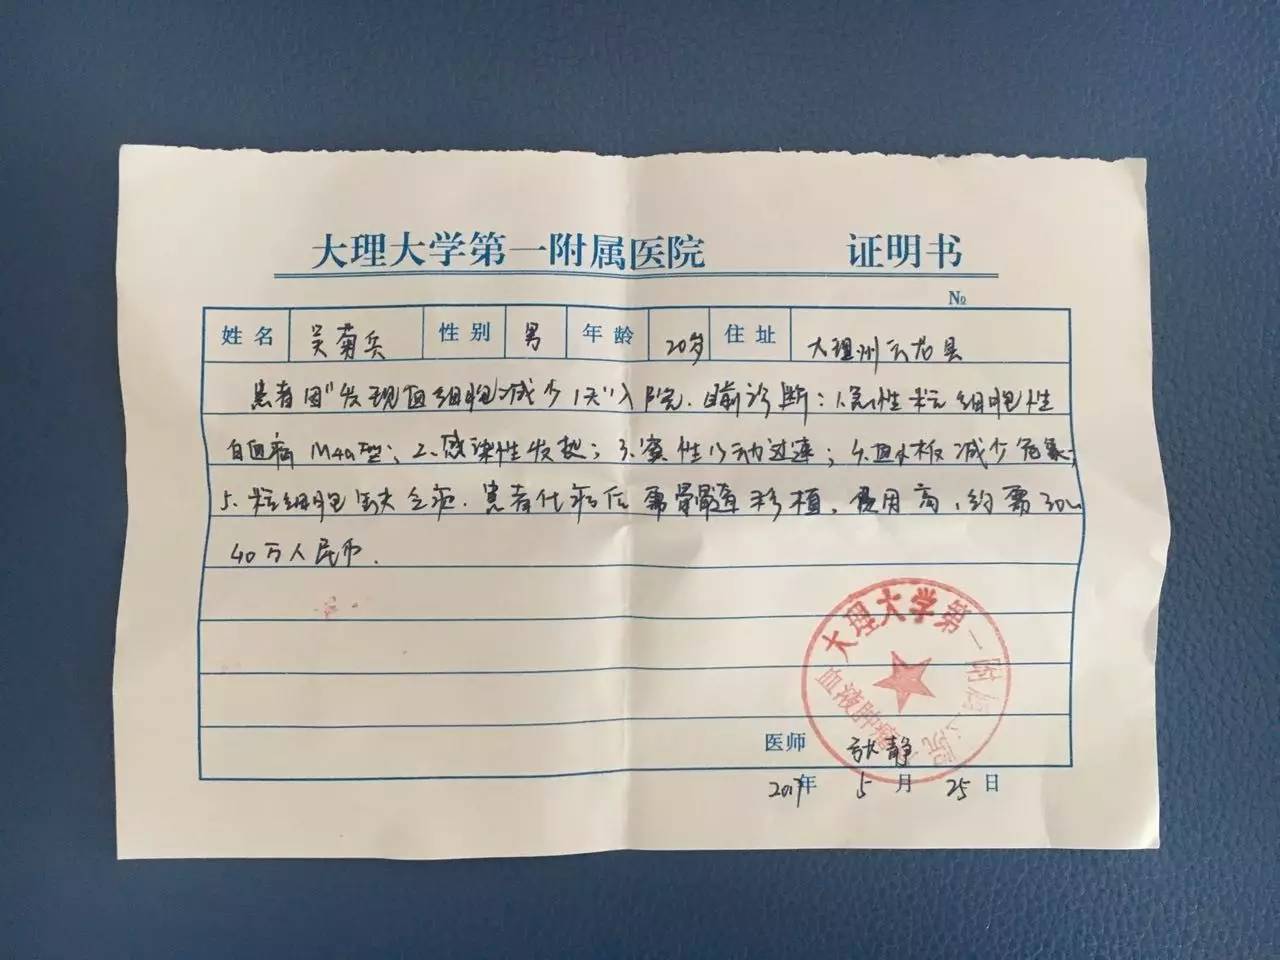 大理大学第一附属医院 证明书
№
姓名 吴菊兵 性别 男 年龄 20岁 住址 大理州云龙县
患者因"发现血细胞减少1天"入院.目前诊断:1.急性粒细胞性
白血病M4a型;2.感染性发热;3.窦性心动过速;4.血小板减少危象;
5.粒细胞缺乏症.患者化疗后需骨髓移植,费用高,约需30~
40万人民币.
大理大学第一附属医院
血液肿瘤
医师 静
2017年 5月 25日